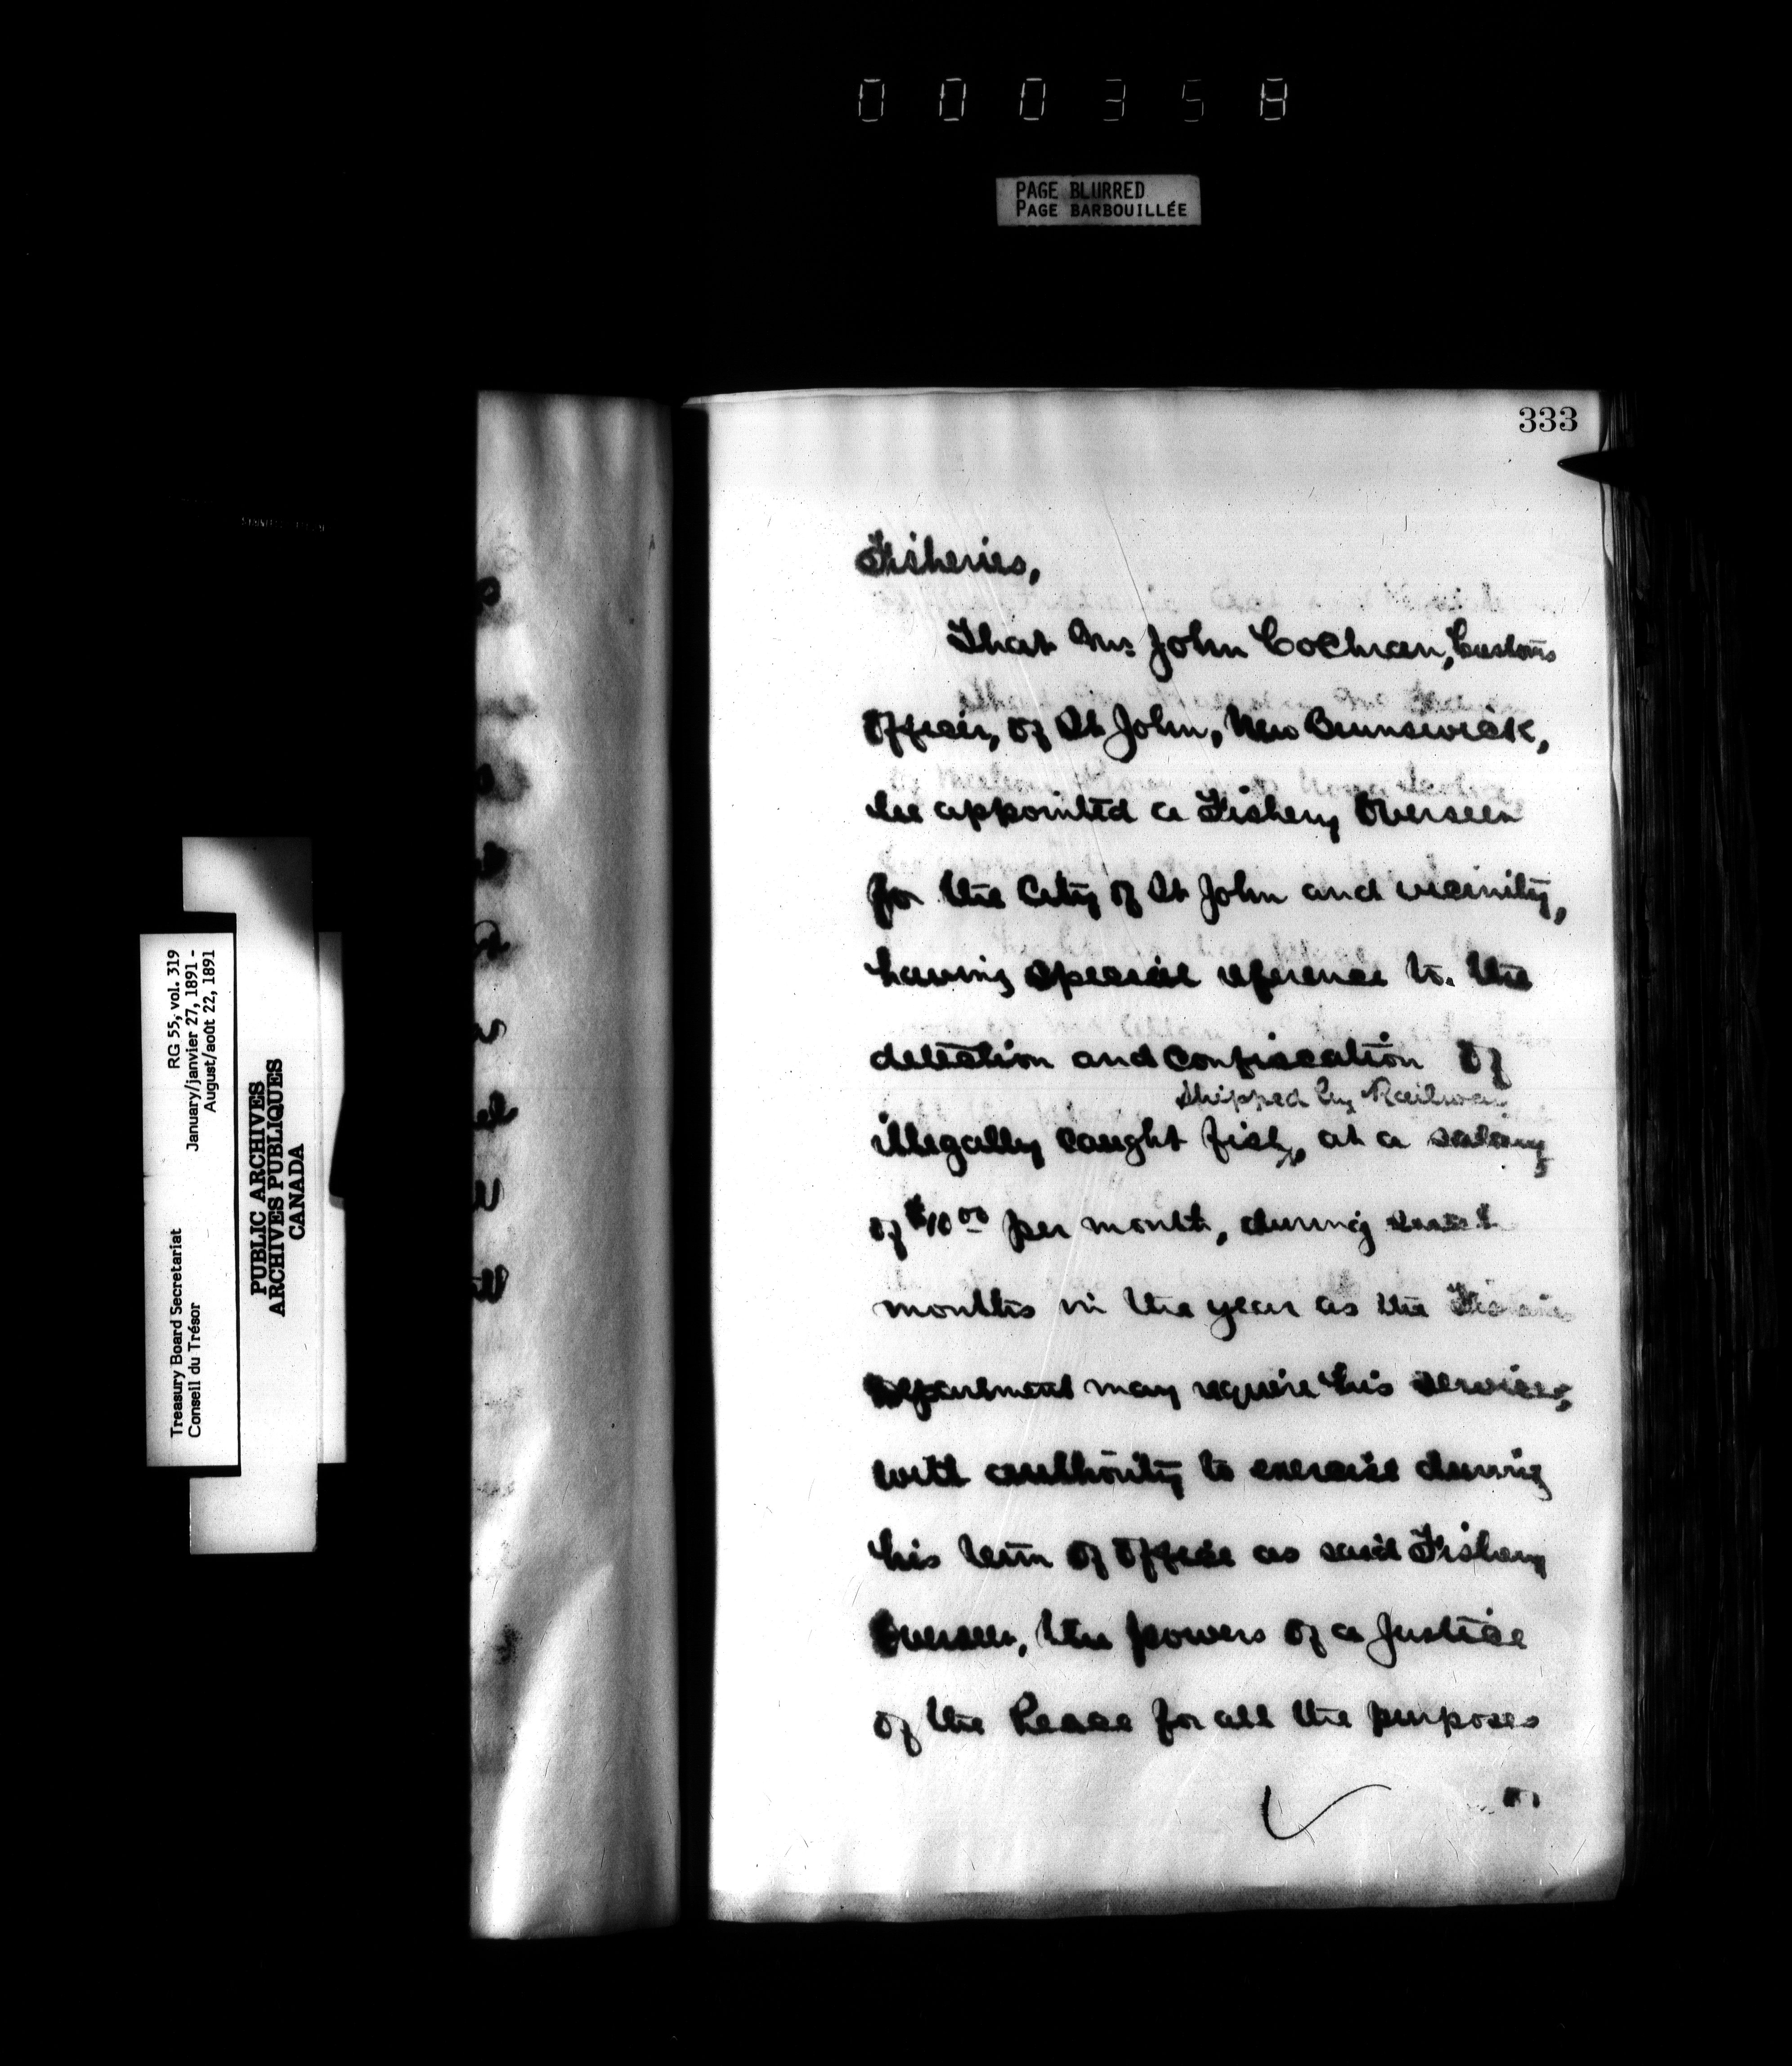 000358
PAGE BLURRED
PAGE BARBOUILLÉE
333
Fisheries,
That Mr. John Cochran, Customs
Officer, of St John, New Brunswick,
be appointed a Fishery Overseer
for the City of St John and vicinity,
having special reference to the
detection and confiscation of
shipped by Railway
illegally caught fish, at a salary
of $10.00 per month, during such
months in the year as the Fisheries
Department may require his services,
with authority to exercise during
his term of office as said Fishery
Overseer, the powers of a Justice
of the Peace for all the purposes
of
Treasury Board Secretariat
Conseil du Trésor
RG 55, vol. 319
January/janvier 27, 1891 -
August/août 22, 1891
PUBLIC ARCHIVES
ARCHIVES PUBLIQUES
CANADA